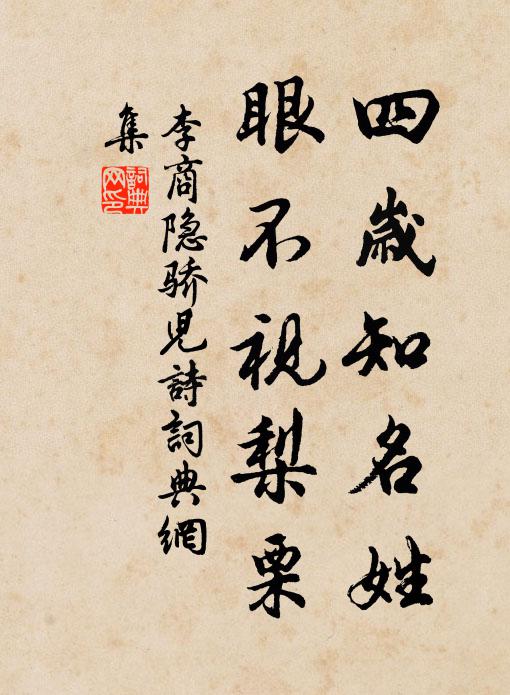 四歲知名姓
眼不視梨栗
李商隐骄兒詩詞典網
集
詞典
网印